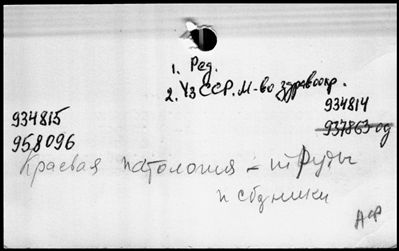 1. Ред.
2. УзССР. М-во здравоохр.
934814
934815
937863 од
958096
Краевая патология - труды
и сборники